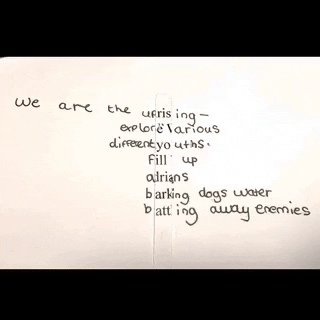 we are the uprising-
explore various
different youths.
fill up
adrians
barking dogs water
batting away enemies